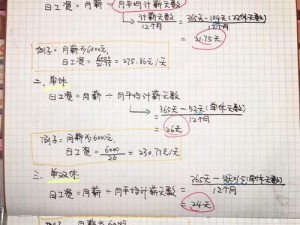 日工资=月薪÷月平均计薪天数
计薪天数
12个月
=365天-104天(双休天数)
12个月
=21.75天
例子:月薪6000元,
日工资=6000/21.75=275.86元/天
二、单休
日工资=月薪÷月平均计薪天数
=365天-52天(单休天数)
12个月
=26天
例子:月薪为6000元,
日工资=6000/26=230.77元/天
三、单双休
日工资=月薪÷月平均计薪天数
=365天-
(单休天数)
12个月
=24天